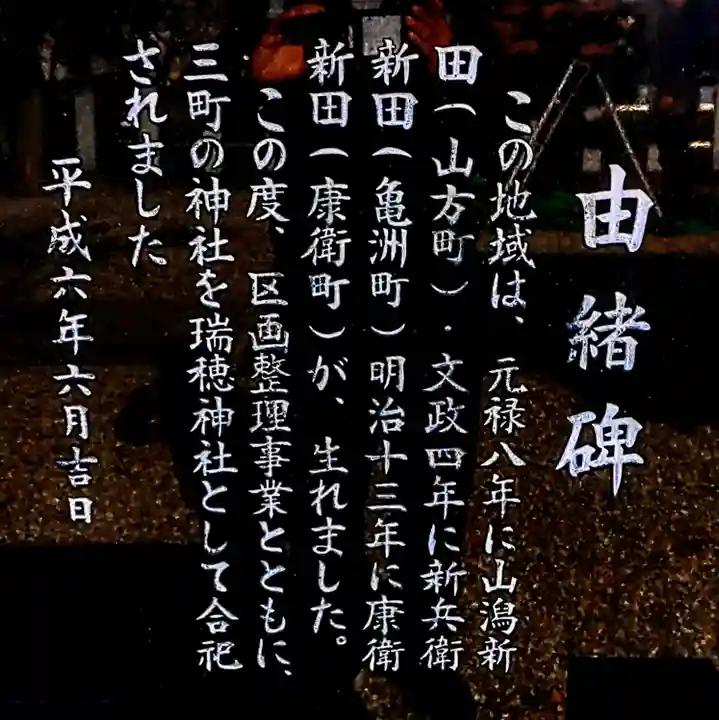 由緒碑
この地域は、元禄八年に山潟新
田(山方町)・文政四年に新兵衛
新田(亀洲町)明治十三年に康衛
新田(康衛町)が、生れました。
この度、区画整理事業とともに、
三町の神社を瑞穂神社として合祀
されました
平成六年六月吉日